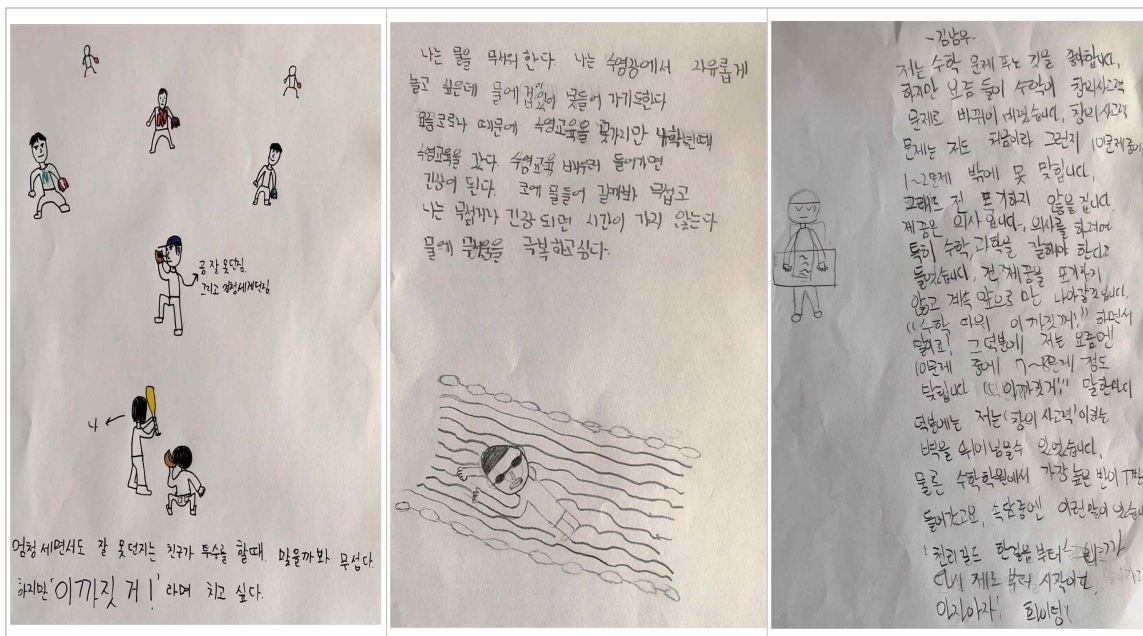 공 잘 못던짐
그리고 엄청세게던짐
나
엄청 세면서도 잘 못던지는 친구가 투수를 할때 맞을까봐 무섭다.
하지만 '이까짓 거!' 라며 치고 싶다.
나는 물을 무서워 한다. 나는 수영장에서 자유롭게
놀고 싶은데 물에 겁이 있어 못들어 가기도한다
요즘코로나 때문에 수영교육을 못가지만 학년때
수영교육을 갔다 수영교육 배우러 들어가면
긴장이 된다. 코에 물들어 갈까봐 무섭고
나는 무섭거나 긴장 되면 시간이 가지 않는다
물에 극복하고싶다.
-김남우-
저는 수학 문제 푸는 것을 좋아합니다.
하지만 요즘 들어 수학이 창의사고력
문제로 바뀌어 버렸습니다. 창의사고력
문제는 저도 처음이라 그런지 10문제중에
1~2문제 밖에 못 맞합니다.
그래도 전 포기하지 않을 겁니다
제꿈은 의사 입니다. 의사를 하려면
특히 수학,과학을 잘해야 한다고
들었습니다. 전 제꿈을 포기하지
않고 계속 앞으로 만 나아갈겁니다.
"수학 따위 이까짓꺼!" 하면서
말이죠! 그 덕분에 저는 요즘엔
10문제 중에 7~8문제 정도
맞힙니다 "이까짓거!" 말한마디
덕분에는 저는 '창의 사고력' 이라는
벽을 뛰어넘을수 있었습니다.
물론 수학학원에서 가장 높은 반이
들어갔고요, 속담중엔 이런말이 있습니
'천리길도 한걸음 부터'
제로 부터 시작이다.
아자아자! 화이팅!